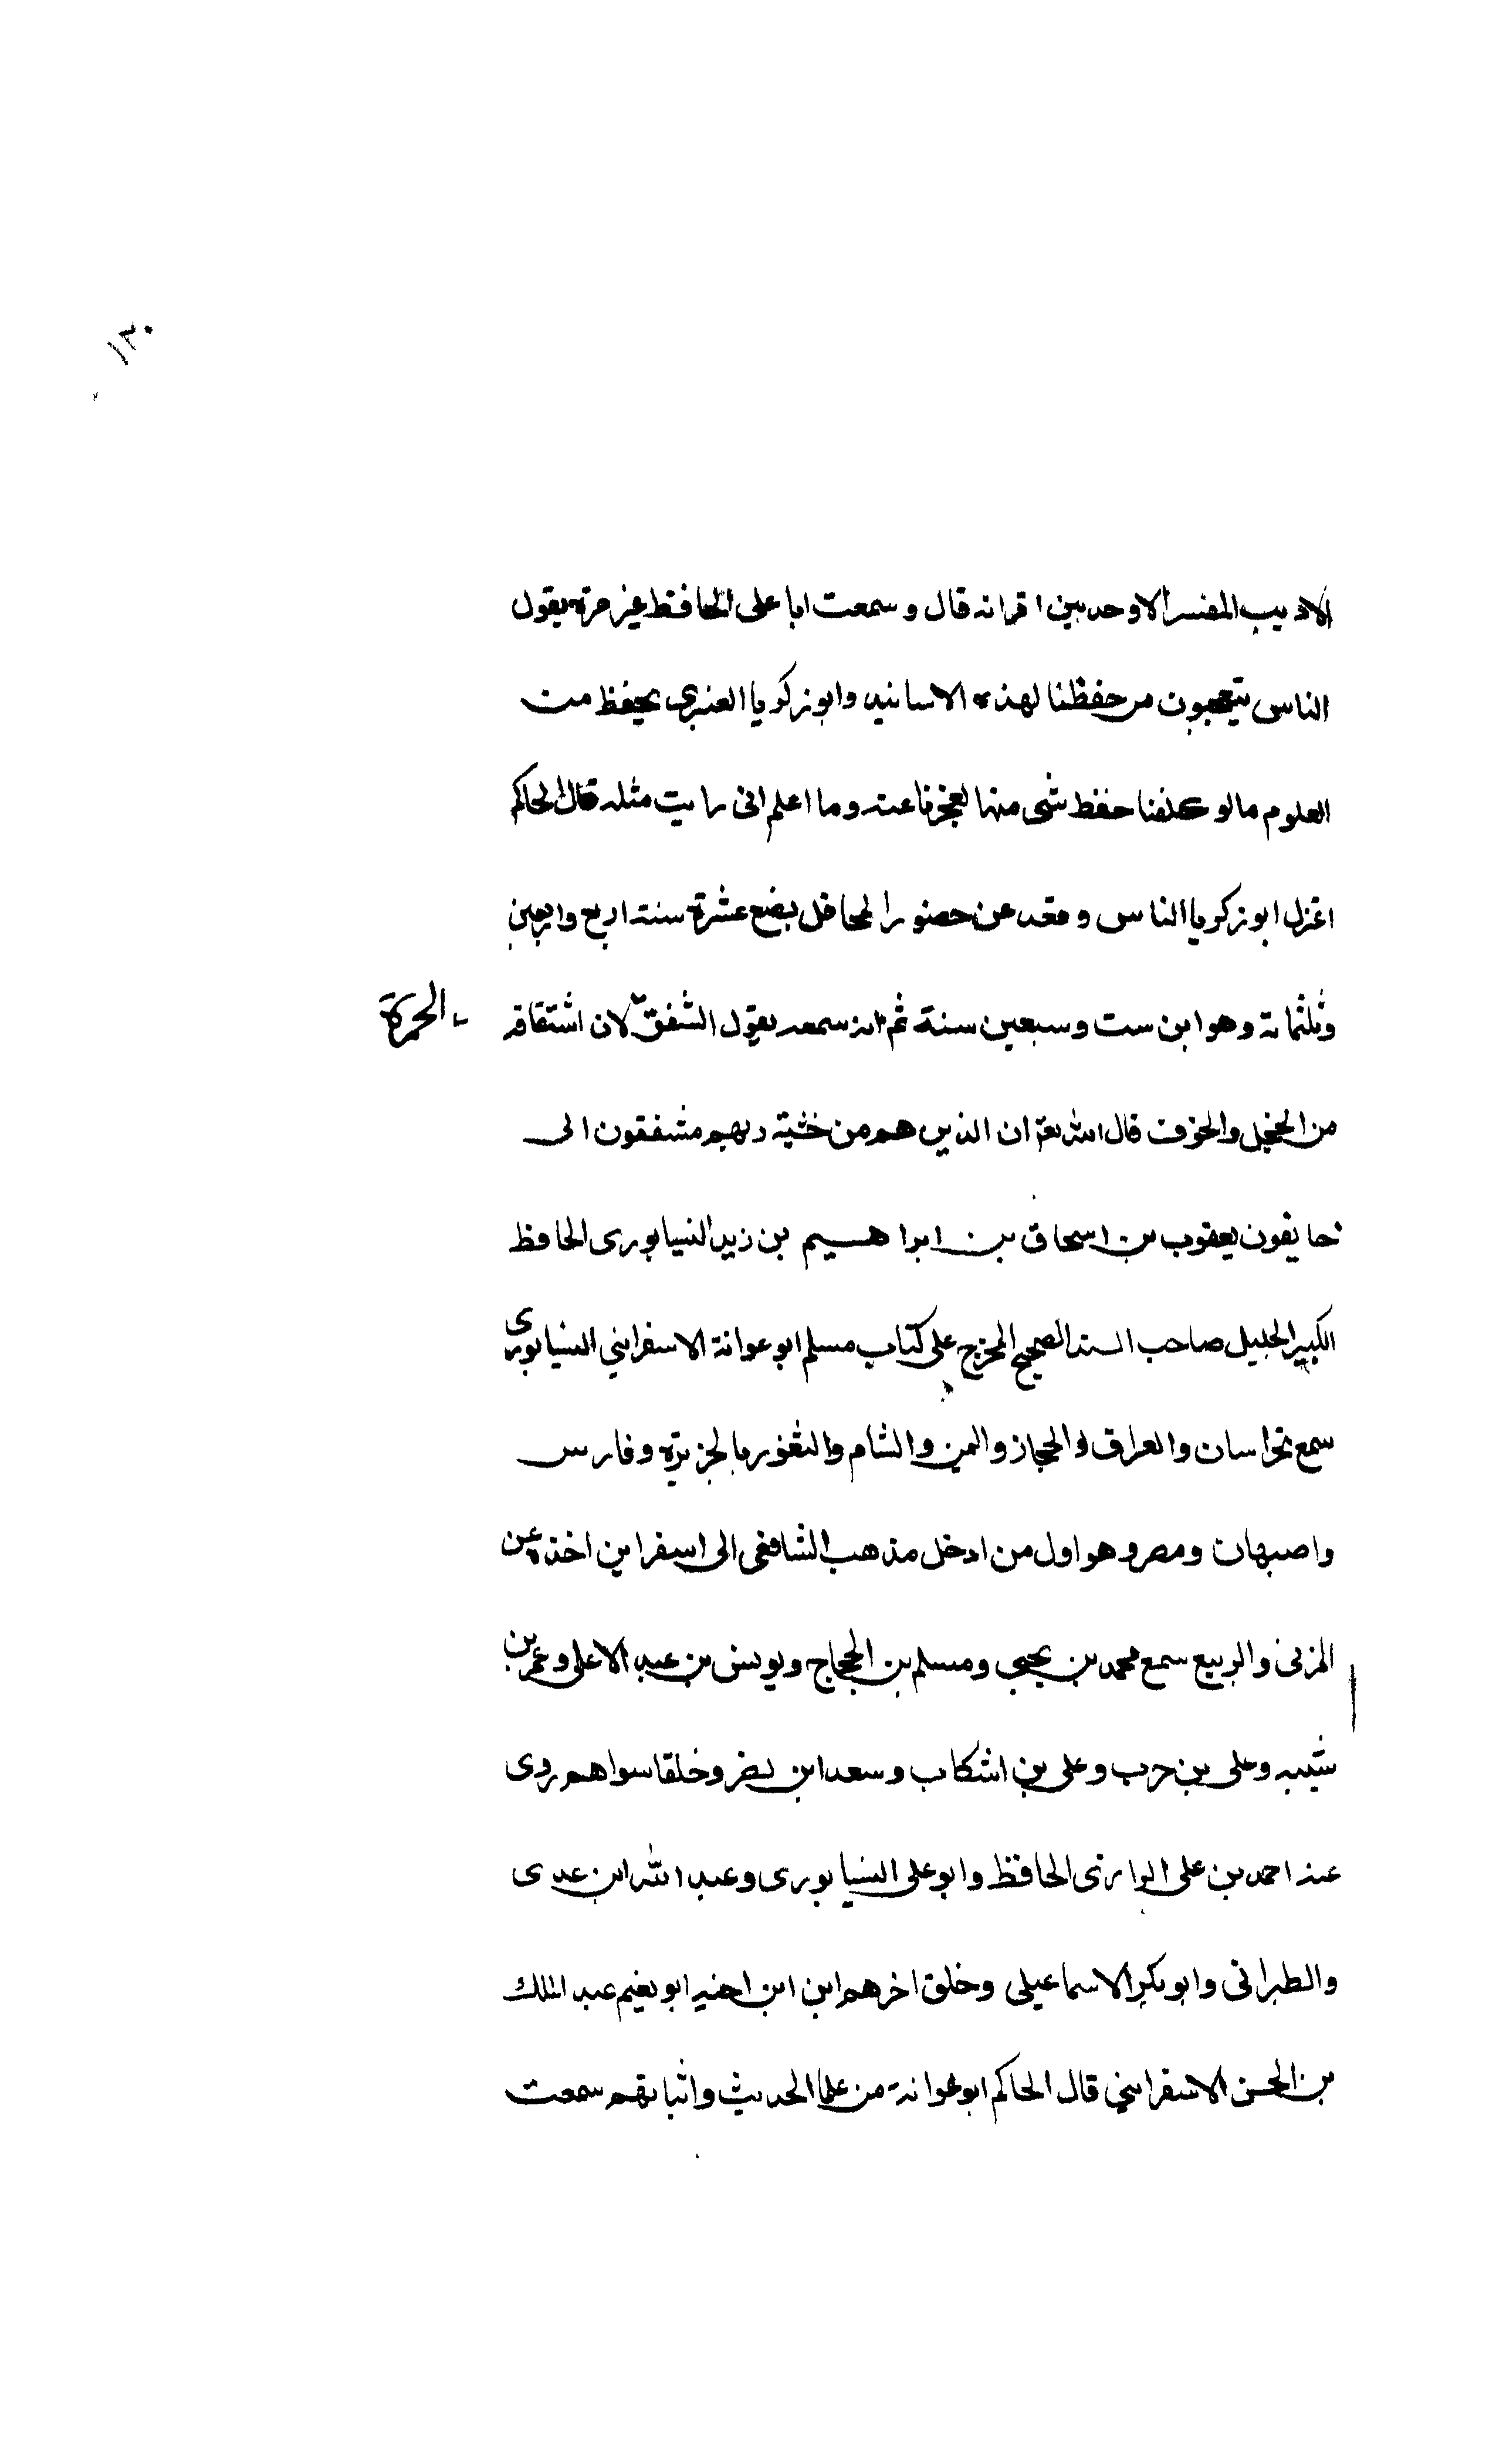 ١٣٠
الاديب المفسر الاوحد بين اقرانه قال وسمعت ابا على الحافظ غير مرة يقول
الناس يتعجبون من حفظنا لهذه الاسانيد وابو زكويا العنبرى يحفظ من
العلوم مالو كلفنا حفظ شى منها لعجزنا عنه وما اعلم انى رايت مثله قال الحاكم
اغزل ابو زكويا الناس وقعد عن حضور المحافل بضع عشرة سنة اربع واربعين
وثلثماتة وهو ابن ست وسبعين سنة ثم انه سمعه يقول الشفق لان اشتقاقه
الحمرة
من الخجل والخوف قال الله تع ان الذين هم من خشية ربهم مشفقون الى
خايفون يعقوب بن اسحاق بن ابراهيم بن زيد النيسابورى الحافظ
الكبير الجليل صاحب السند الصحيح المخرج على كتاب مسلم ابو عوانة الاسفراينى النيسابورى
سمع بخراسان والعراق والحجاز واليمن والشام والثغور بالجزيرة وفارس
واصبهان ومصر وهو اول من ادخل مذهب الشافعى الى اسفراين اخذه عن
المزنى والربيع سمع محمد بن يحيى ومسلم بن الحجاج ويونس بن عبد الاعلى وعمر بن
شيبه وعلى بن حرب وعلى بن اشكاب وسعد ابن نصر وخلقا سواهم روى
عنه احمد بن على الرازى الحافظ وابو على النيسابورى وعبد الله ابن عدى
والطبرانى وابو بكر الاسماعيلى وخلق اخرهم ابن ابن اخيه ابو نعيم عبد الملك
بن الحسن الاسفراينى قال الحاكم ابو عوانة من علما الحديث واثباتهم سمعت